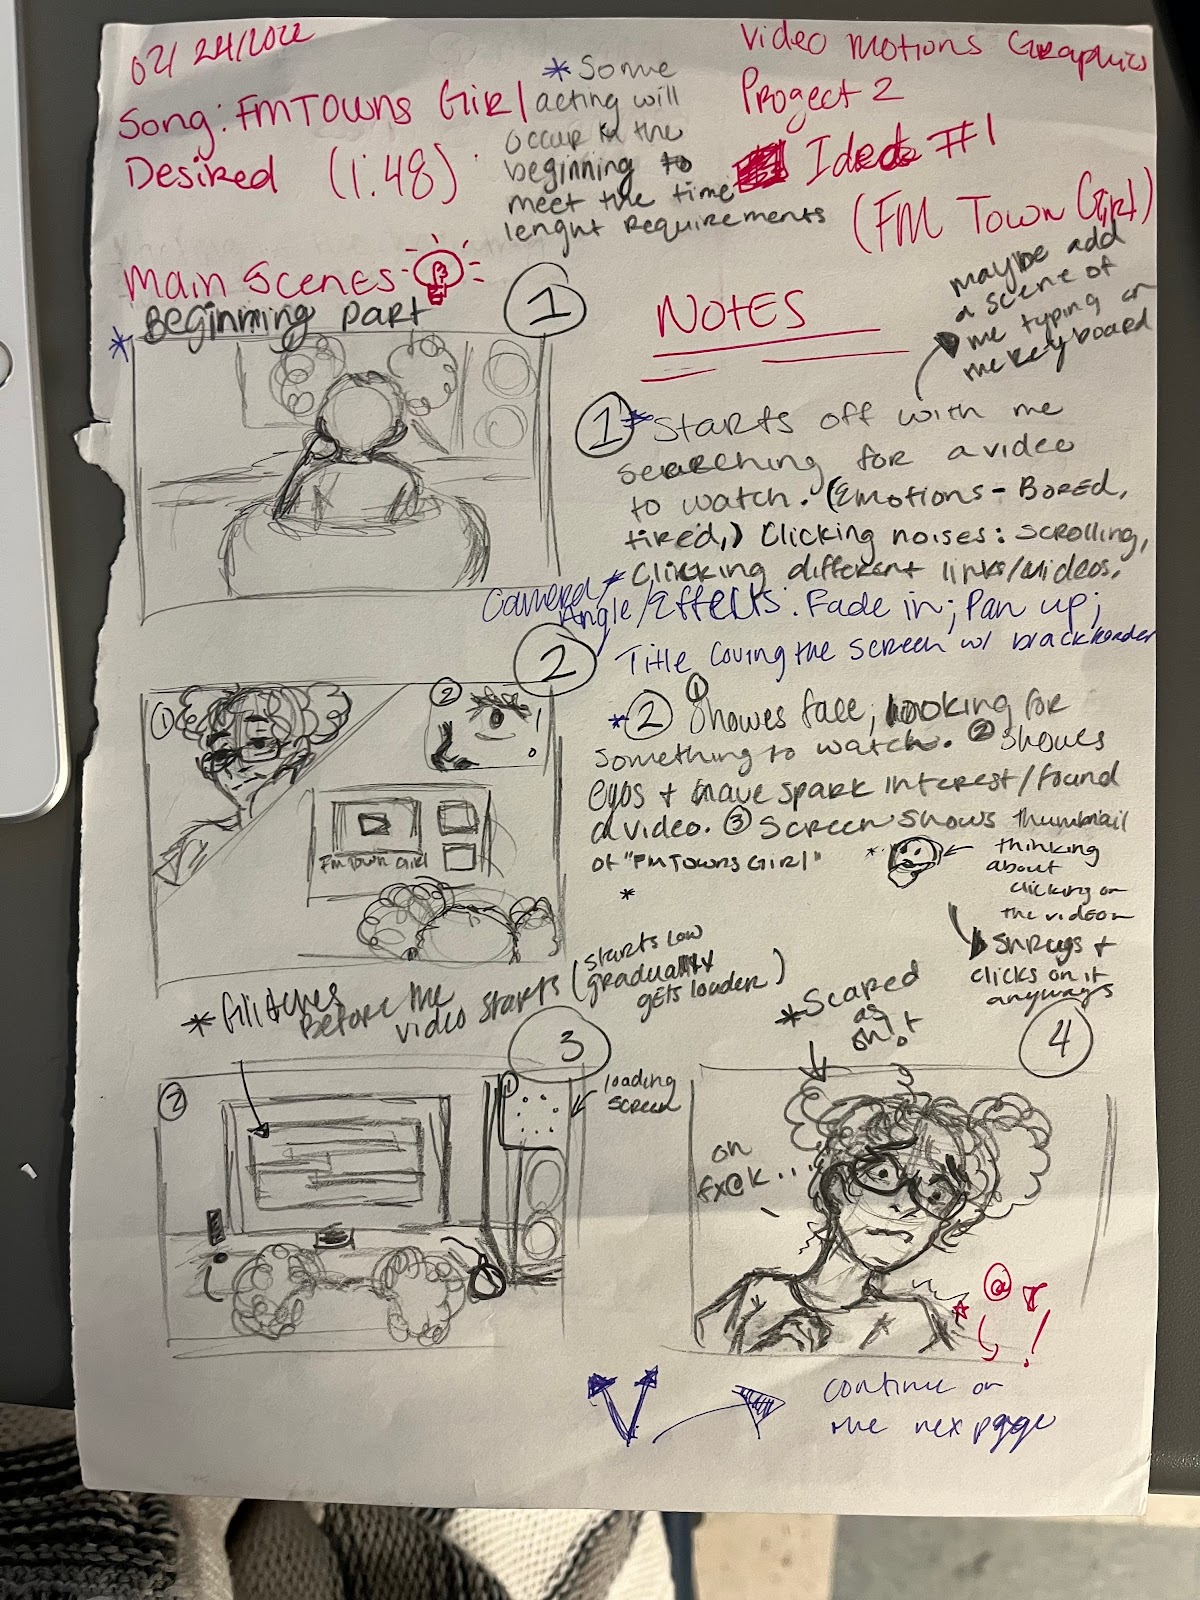 02/24/2022
Song: FMTOWNS GiRl
Desired (1:48)
* Some
acting will
occur in the
beginning to
meet the time
lenght Requirements
Video Motions Graphics
Project 2
Idea #1
(FM Town Girl)
Main Scenes
Beginning part
*
1
NOTES
maybe add
a scene of
me typing on
the keyboard
1 * Starts off with me
searching for a video
to watch. (Emotions - Bored,
tired,) Clicking noises: scrolling,
Clicking different links/videos.
Camera *
Angle/Effects: Fade in; Pan up;
Title Coving the screen w/ black border
2
1
2
FM Town Girl
* 2 1 Showes face, looking for
something to watch. 2 Shows
eyes + have spark interest/found
a video. 3 Screen shows thumbnail
of "FM Towns Girl"
*
* thinking
about
clicking on
the video
Shrugs +
clicks on it
anyways
* Glitches
Before the
video starts (starts low
gradually
gets louder)
3
2
1
loading
screen
* Scared
as
sh!t
4
oh
fx@k...
@
!
continue on
the nex page